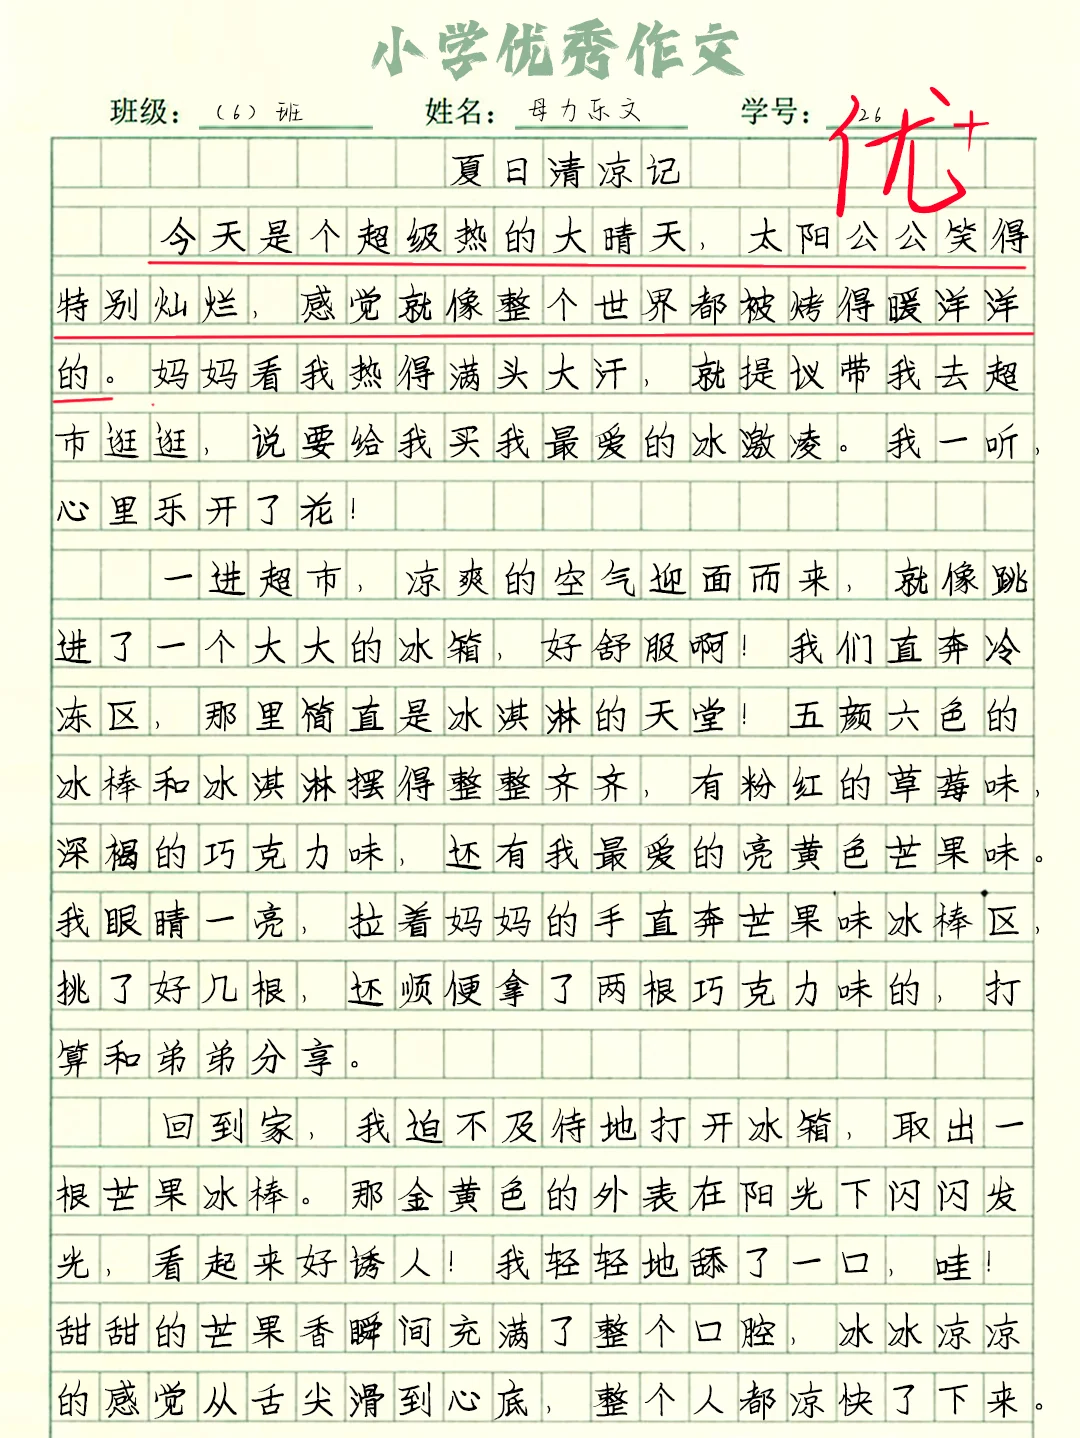 小学优秀作文
班级：（6）班 姓名：母力乐文 学号：26
优+
夏日清凉记
今天是个超级热的大晴天，太阳公公笑得
特别灿烂，感觉就像整个世界都被烤得暖洋洋
的。妈妈看我热得满头大汗，就提议带我去超
市逛逛，说要给我买我最爱的冰激凌。我一听，
心里乐开了花！
一进超市，凉爽的空气迎面而来，就像跳
进了一个大大的冰箱，好舒服啊！我们直奔冷
冻区，那里简直是冰淇淋的天堂！五颜六色的
冰棒和冰淇淋摆得整整齐齐，有粉红的草莓味，
深褐的巧克力味，还有我最爱的亮黄色芒果味。
我眼睛一亮，拉着妈妈的手直奔芒果味冰棒区，
挑了好几根，还顺便拿了两根巧克力味的，打
算和弟弟分享。
回到家，我迫不及待地打开冰箱，取出一
根芒果冰棒。那金黄色的外表在阳光下闪闪发
光，看起来好诱人！我轻轻地舔了一口，哇！
甜甜的芒果香瞬间充满了整个口腔，冰冰凉凉
的感觉从舌尖滑到心底，整个人都凉快了下来。